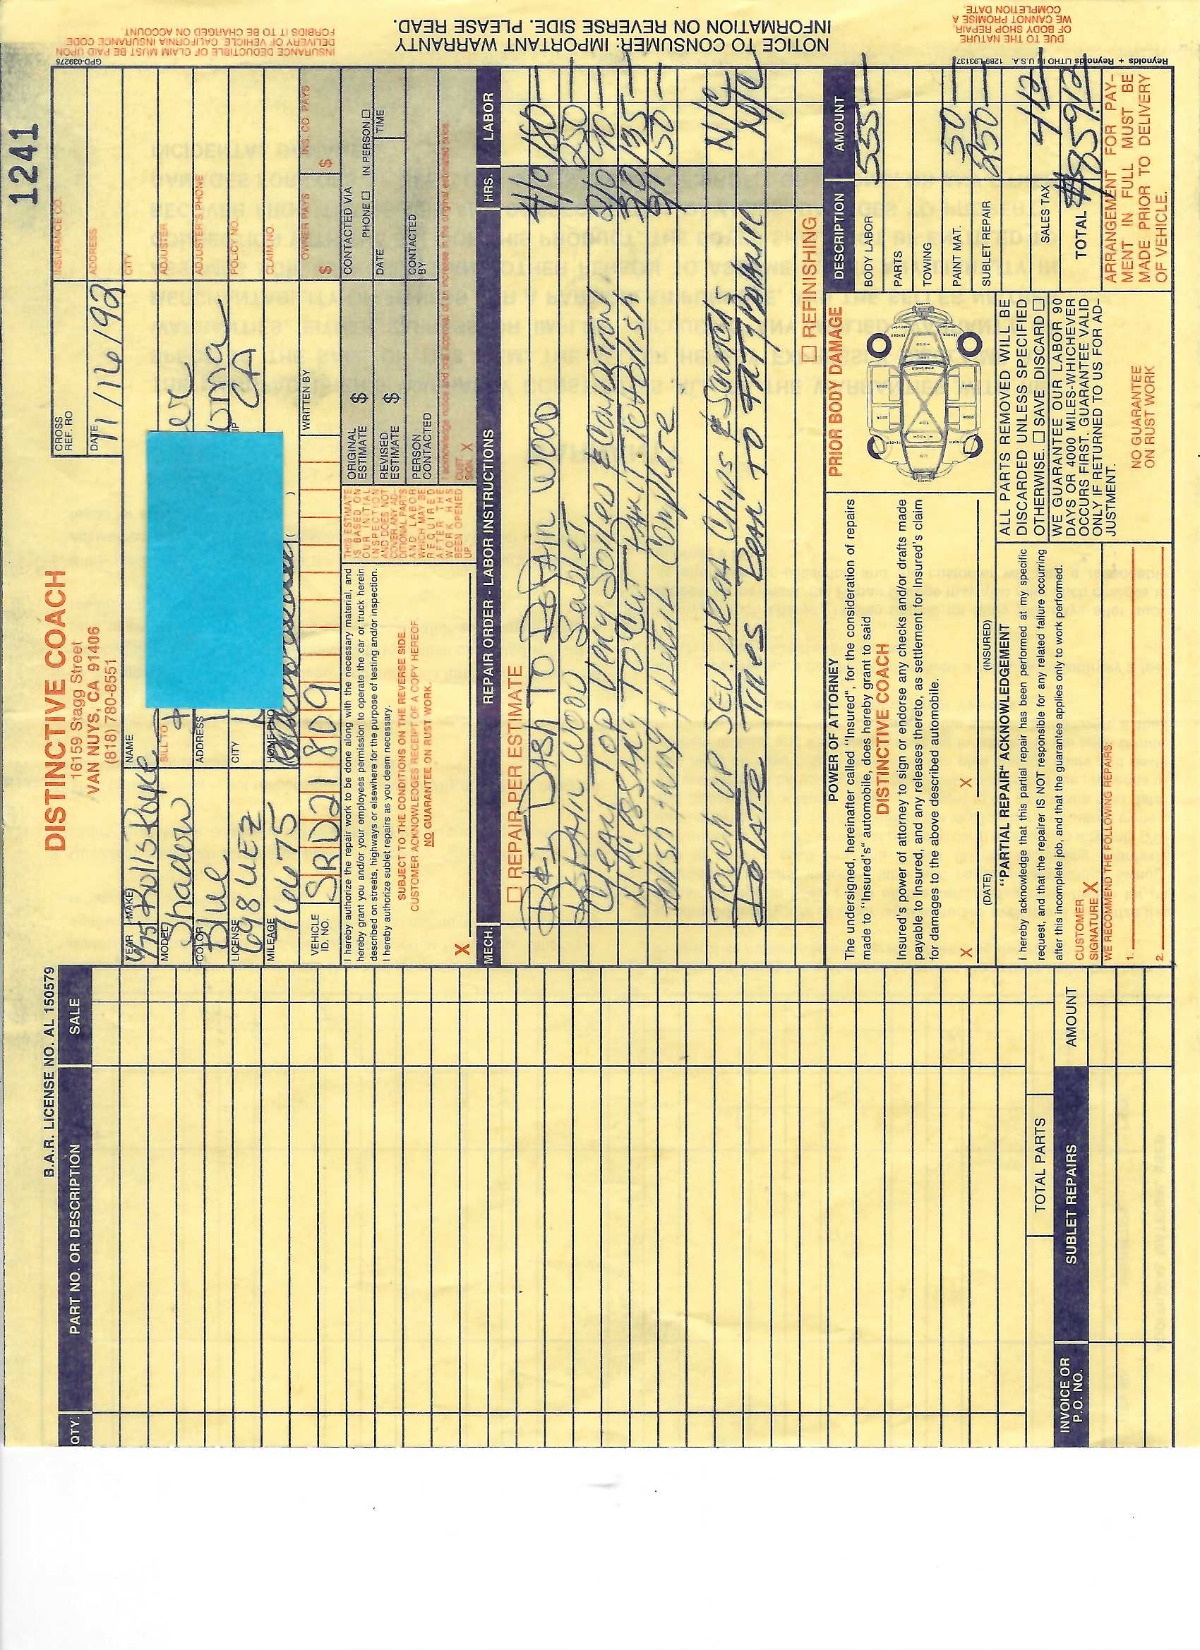 1241
DISTINCTIVE COACH
16159 Stagg Street
VAN NUYS, CA 91406
(818) 780-8551
B.A.R. LICENSE NO. AL 150579
QTY. PART NO. OR DESCRIPTION SALE
TOTAL PARTS
INVOICE OR P.O. NO. SUBLET REPAIRS AMOUNT
CROSS REF. RO
DATE 11/16/92
YEAR - MAKE 975 Rolls Royce
MODEL Shadow
COLOR Blue
LICENSE 698 UEZ
MILEAGE 76675
VEHICLE I.D. NO. SRD21809
NAME
BILL TO
ADDRESS
CITY
CA
WRITTEN BY
INSURANCE CO.
ADDRESS
CITY
ADJUSTER
ADJUSTER'S PHONE
POLICY NO.
CLAIM NO.
OWNER PAYS $ INS. CO. PAYS $
I hereby authorize the repair work to be done along with the necessary material, and
hereby grant you and/or your employees permission to operate the car or truck herein
described on streets, highways or elsewhere for the purpose of testing and/or inspection.
I hereby authorize sublet repairs as you deem necessary.
SUBJECT TO THE CONDITIONS ON THE REVERSE SIDE.
CUSTOMER ACKNOWLEDGES RECEIPT OF A COPY HEREOF.
NO GUARANTEE ON RUST WORK.
X
THIS ESTIMATE
IS BASED ON
OUR INITIAL
INSPECTION
AND DOES NOT
COVER ANY ADDITIONAL PARTS
AND LABOR
WHICH MAY BE
REQUIRED
AFTER THE
WORK HAS
BEEN OPENED
UP.
ORIGINAL ESTIMATE $
REVISED ESTIMATE $
PERSON CONTACTED
CONTACTED VIA PHONE IN PERSON
DATE TIME
CONTACTED BY
CUST. SIGN. X
MECH. REPAIR ORDER - LABOR INSTRUCTIONS HRS. LABOR
REPAIR PER ESTIMATE REFINISHING
R&I DASH TO DETAIL WOOD 4/0 180 —
DETAIL WOOD Sublet 250 —
Clean TOP Very Soiled & Condition 2/0 90 —
Necessary TO Cut Paint to Polish 3/0 135 —
Polish + Wax & Detail Complete 5/ 150 —
Touch UP SEV. Nicks Chips & Smooth N/C
Rotate Tires Rear TO FR / Balance N/C
POWER OF ATTORNEY
The undersigned, hereinafter called "Insured", for the consideration of repairs
made to "Insured's" automobile, does hereby grant to said
DISTINCTIVE COACH
Insured's power of attorney to sign or endorse any checks and/or drafts made
payable to Insured, and any releases thereto, as settlement for Insured's claim
for damages to the above described automobile.
X X
(DATE) (INSURED)
PRIOR BODY DAMAGE
DESCRIPTION AMOUNT
BODY LABOR 555 —
PARTS
TOWING
PAINT MAT. 50 —
SUBLET REPAIR 250 —
SALES TAX 4 12
TOTAL $859 12
"PARTIAL REPAIR" ACKNOWLEDGEMENT
I hereby acknowledge that this partial repair has been performed at my specific
request, and that the repairer IS NOT responsible for any related failure occurring
after this incomplete job, and that the guarantee applies only to work performed.
CUSTOMER SIGNATURE X
WE RECOMMEND THE FOLLOWING REPAIRS:
1.
2.
ALL PARTS REMOVED WILL BE
DISCARDED UNLESS SPECIFIED
OTHERWISE. SAVE DISCARD
WE GUARANTEE OUR LABOR 90
DAYS OR 4000 MILES-WHICHEVER
OCCURS FIRST. GUARANTEE VALID
ONLY IF RETURNED TO US FOR ADJUSTMENT.
NO GUARANTEE
ON RUST WORK
ARRANGEMENT FOR PAYMENT IN FULL MUST BE
MADE PRIOR TO DELIVERY
OF VEHICLE.
GPD-039275
Reynolds + Reynolds LITHO IN U.S.A.
INSURANCE DEDUCTIBLE OF CLAIM MUST BE PAID UPON
DELIVERY OF VEHICLE. CALIFORNIA INSURANCE CODE
FORBIDS IT TO BE CHARGED ON ACCOUNT
NOTICE TO CONSUMER: IMPORTANT WARRANTY
INFORMATION ON REVERSE SIDE. PLEASE READ.
DUE TO THE NATURE
OF BODY SHOP REPAIR
WE CANNOT PROMISE A
COMPLETION DATE